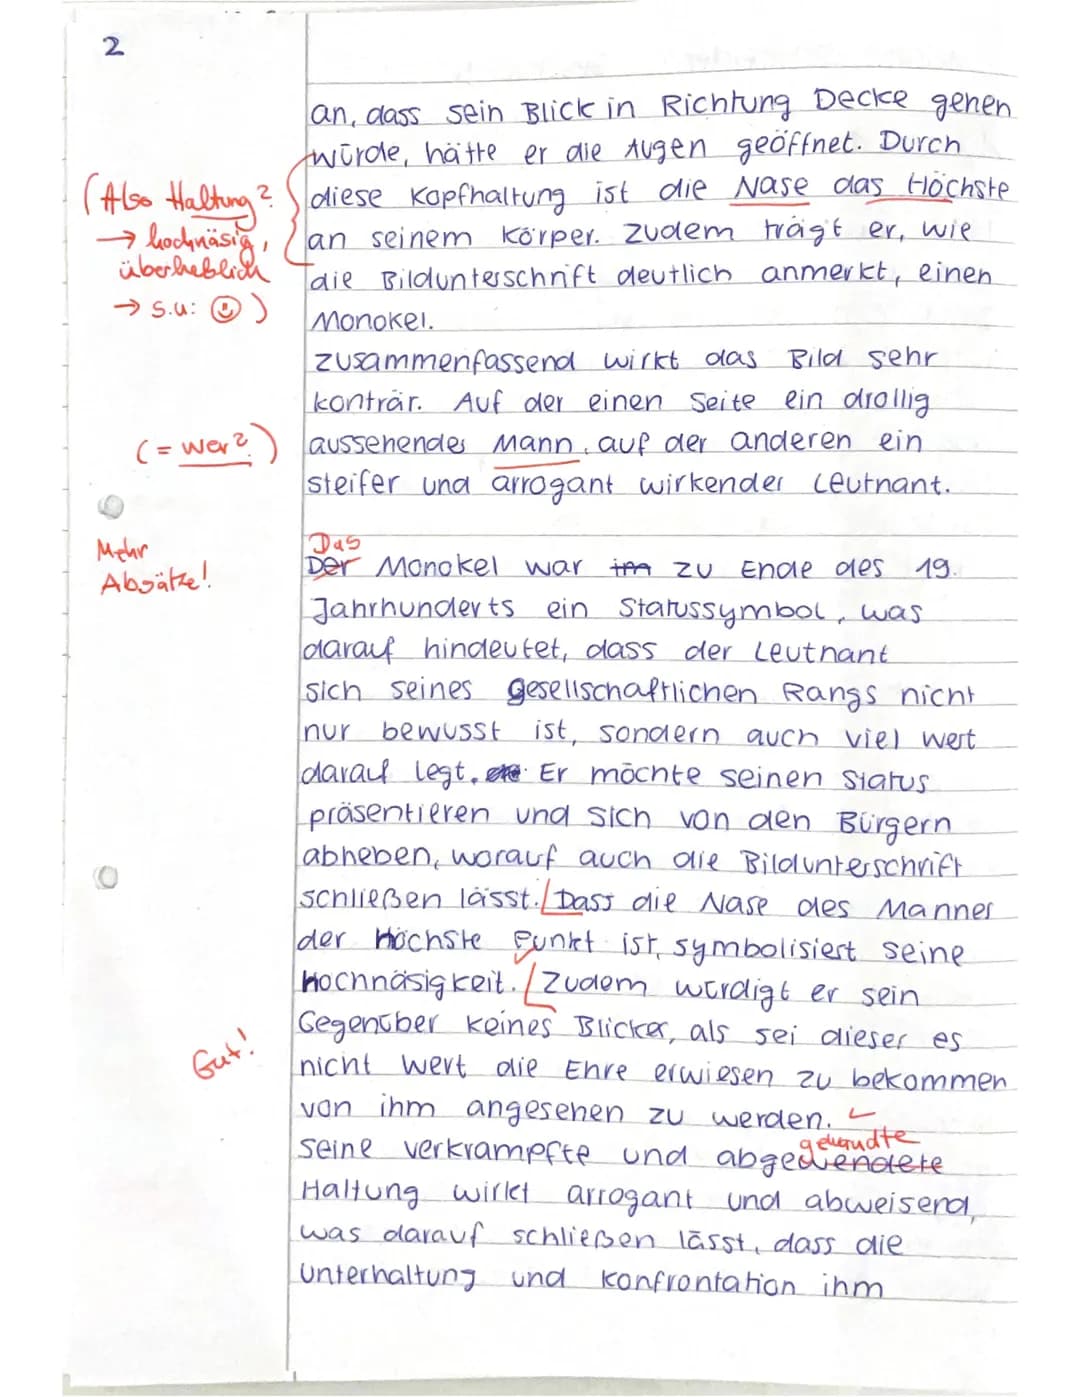 2
an, dass sein Blick in Richtung Decke gehen
würde, hätte er die Augen geöffnet. Durch
diese Kopfhaltung ist die Nase das Höchste
an seinem Körper. Zudem trägt er, wie
die Bildunterschrift deutlich anmerkt, einen
Monokel.
(Also Haltung?
→ hochnäsig,
überheblich
→ s.u: ☺)
Zusammenfassend wirkt das Bild sehr
konträr. Auf der einen Seite ein drollig
aussehendes Mann, auf der anderen ein
steifer und arrogant wirkender Leutnant.
(= wer?)
Mehr
Absätze!
Das
Der Monokel war im zu Ende des 19.
Jahrhunderts ein Statussymbol, was
darauf hindeutet, dass der Leutnant
sich seines gesellschaftlichen Rangs nicht
nur bewusst ist, sondern auch viel Wert
darauf legt. Er möchte seinen Status
präsentieren und sich von den Bürgern
abheben, worauf auch die Bildunterschrift
schließen lässt. Dass die Nase des Mannes
der Höchste Punkt ist, symbolisiert seine
Hochnäsigkeit. Zudem würdigt er sein
Gegenüber keines Blickes, als sei dieser es
nicht Wert die Ehre erwiesen zu bekommen
von ihm angesehen zu werden.
Gut!
gewandte
Seine verkrampfte und abgewendete
Haltung wirkt arrogant und abweisend,
was darauf schließen lässt, dass die
Unterhaltung und Konfrontation ihm